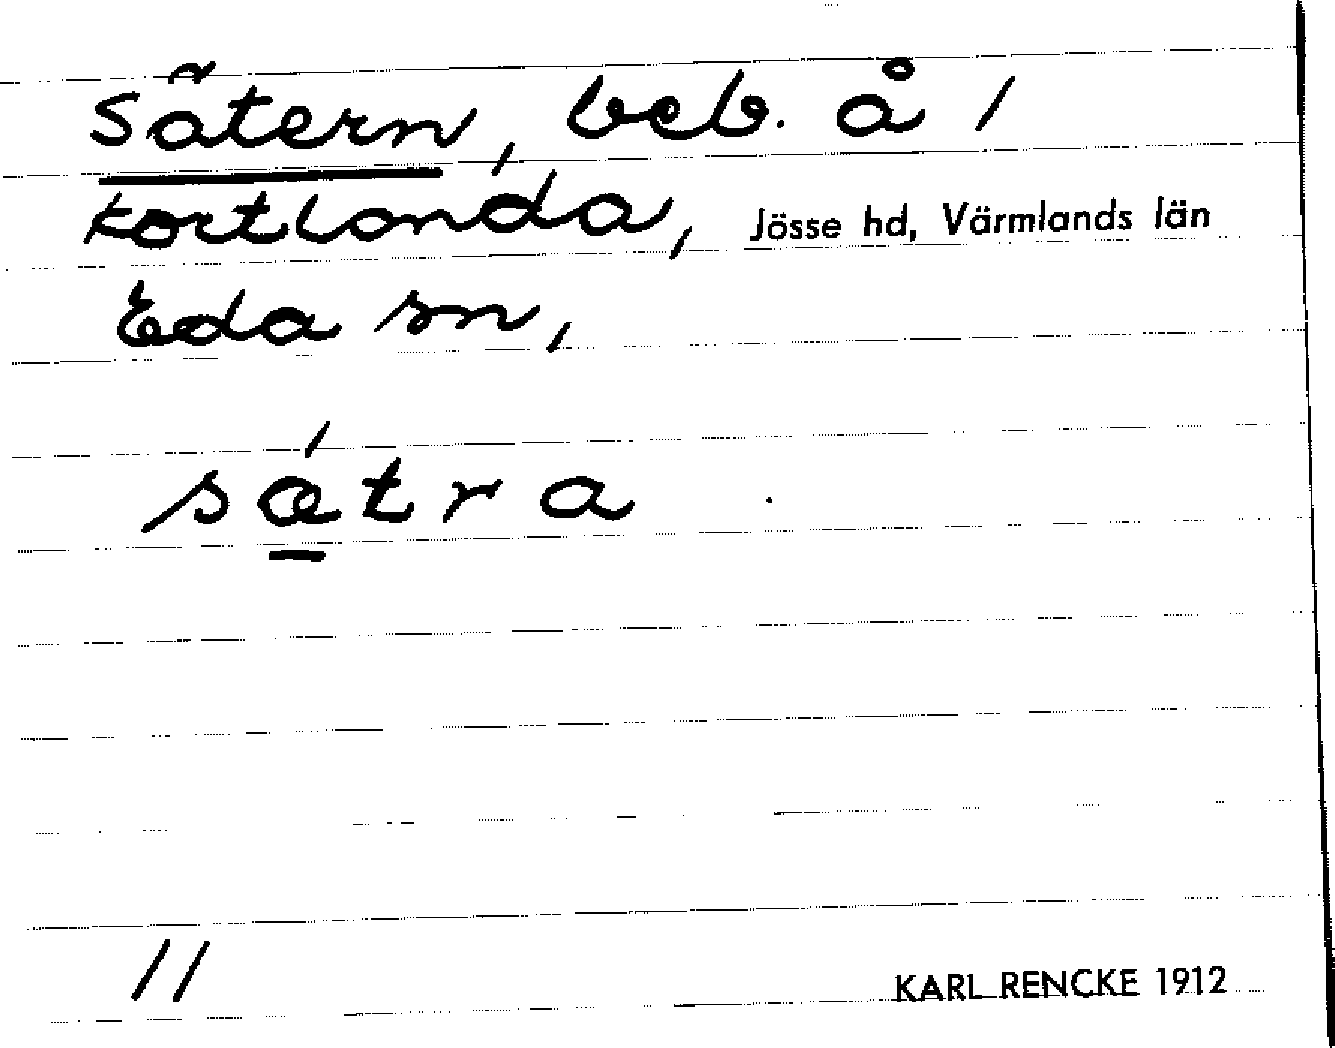 Sätern, beb. å 1
Kortlanda, Jösse hd, Värmlands län
Eda sn,
sǽtra
11 KARL RENCKE 1912